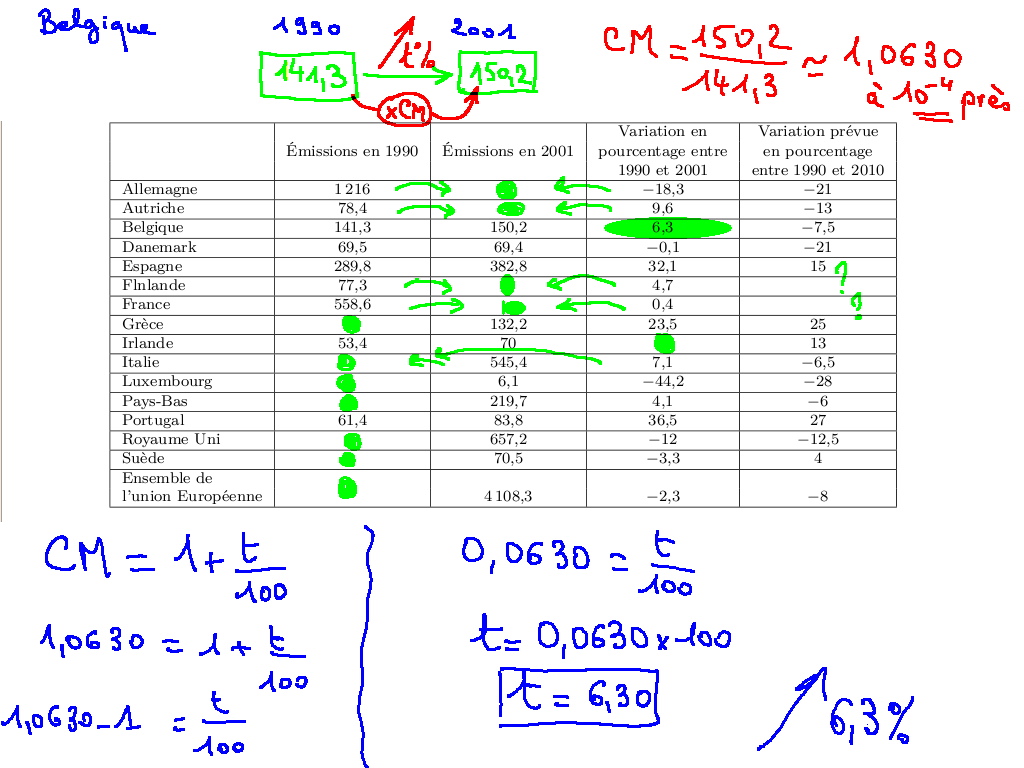 Belgique
1990 2001
141,3 t% 150,2
×CM
CM = 150,2 / 141,3 ≃ 1,0630
à 10⁻⁴ près
Émissions en 1990 | Émissions en 2001 | Variation en pourcentage entre 1990 et 2001 | Variation prévue en pourcentage entre 1990 et 2010
Allemagne | 1 216 | | −18,3 | −21
Autriche | 78,4 | | 9,6 | −13
Belgique | 141,3 | 150,2 | 6,3 | −7,5
Danemark | 69,5 | 69,4 | −0,1 | −21
Espagne | 289,8 | 382,8 | 32,1 | 15 ?
FInlande | 77,3 | | 4,7 |
France | 558,6 | | 0,4 | ?
Grèce | | 132,2 | 23,5 | 25
Irlande | 53,4 | 70 | | 13
Italie | | 545,4 | 7,1 | −6,5
Luxembourg | | 6,1 | −44,2 | −28
Pays-Bas | | 219,7 | 4,1 | −6
Portugal | 61,4 | 83,8 | 36,5 | 27
Royaume Uni | | 657,2 | −12 | −12,5
Suède | | 70,5 | −3,3 | 4
Ensemble de l'union Européenne | | 4 108,3 | −2,3 | −8
CM = 1 + t/100
1,0630 = 1 + t/100
1,0630 - 1 = t/100
0,0630 = t/100
t = 0,0630 × 100
t = 6,30
6,3%